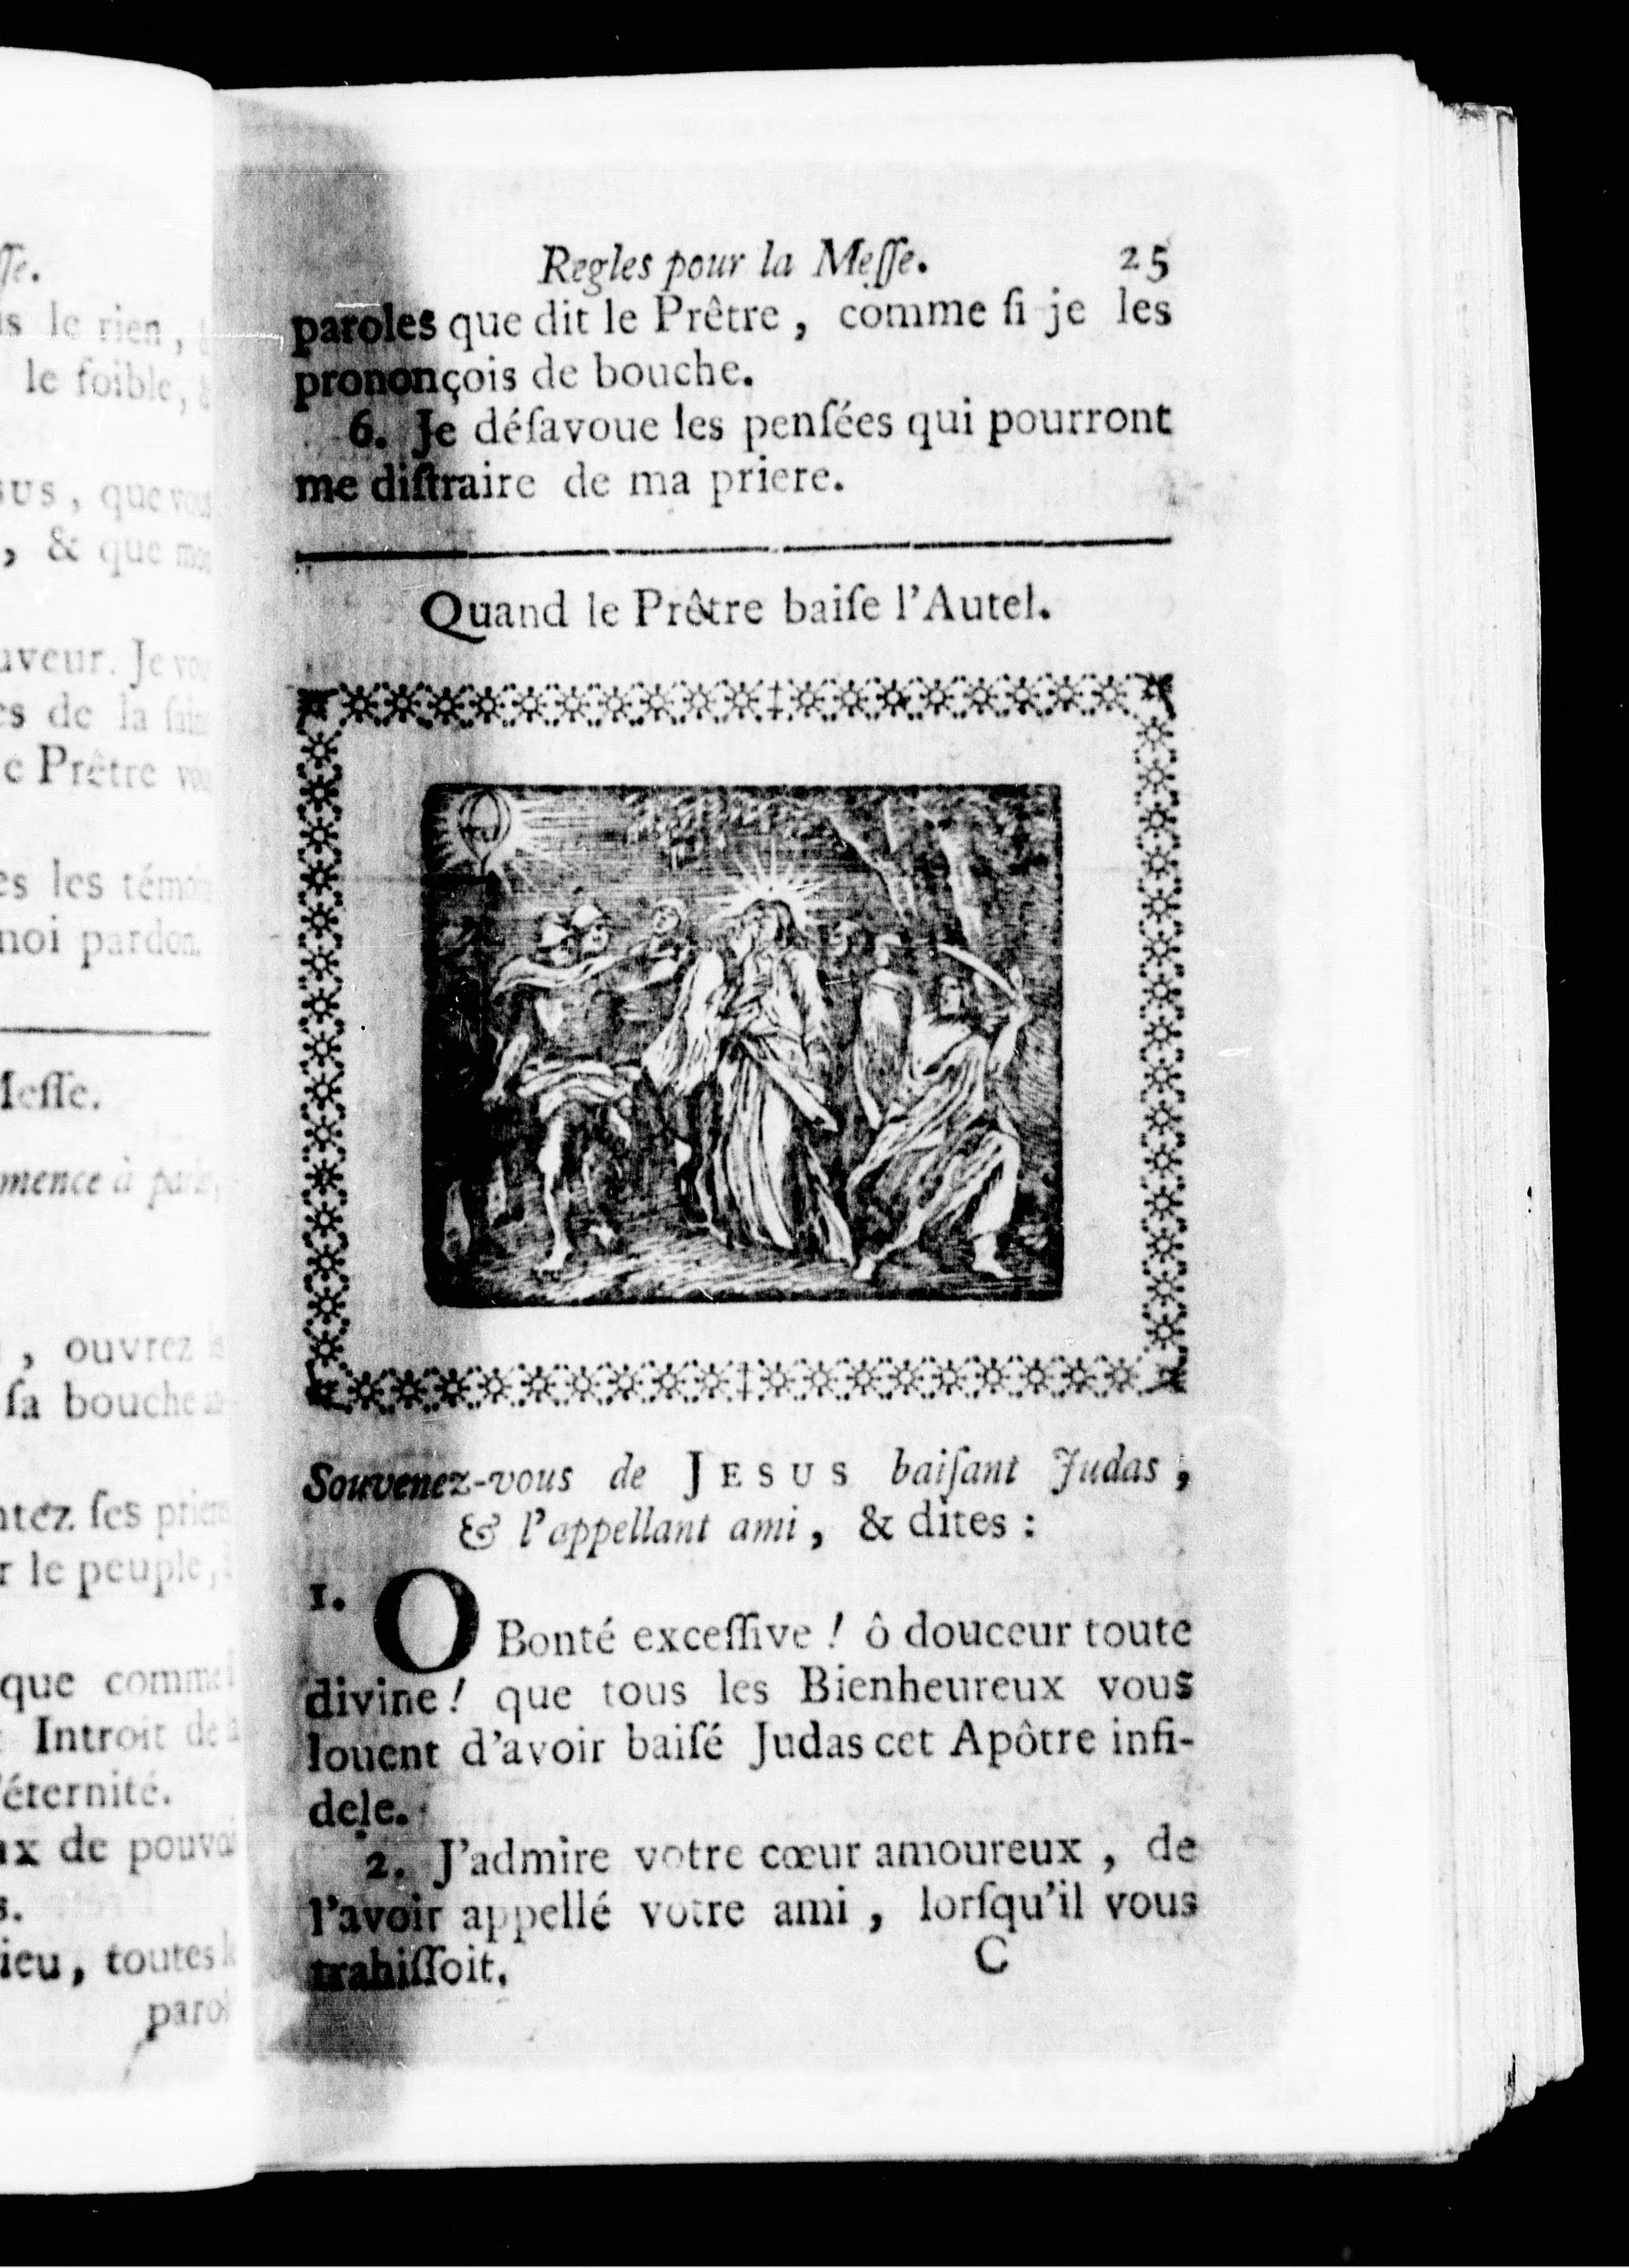 ſſe.
s le rien,
le foible,
sus, que vous
, & que
uveur. Je
es de la
e Prêtre
es les
moi pardon.
Meſſe.
mence à
, ouvrez
ſa bouche
ntez ſes
r le peuple,
que comme
Introit de
l'éternité.
ux de
s.
ieu, toutes
parol
Regles pour la Meſſe. 25
paroles que dit le Prêtre, comme ſi je les
prononçois de bouche.
6. Je déſavoue les penſées qui pourront
me diſtraire de ma priere.
Quand le Prêtre baiſe l'Autel.
Souvenez-vous de JESUS baiſant Judas,
& l'appellant ami, & dites :
1. O Bonté exceſſive ! ô douceur toute
divine ! que tous les Bienheureux vous
louent d'avoir baiſé Judas cet Apôtre infi-
dele.
2. J'admire votre cœur amoureux, de
l'avoir appellé votre ami, lorſqu'il vous
trahiſſoit.
C